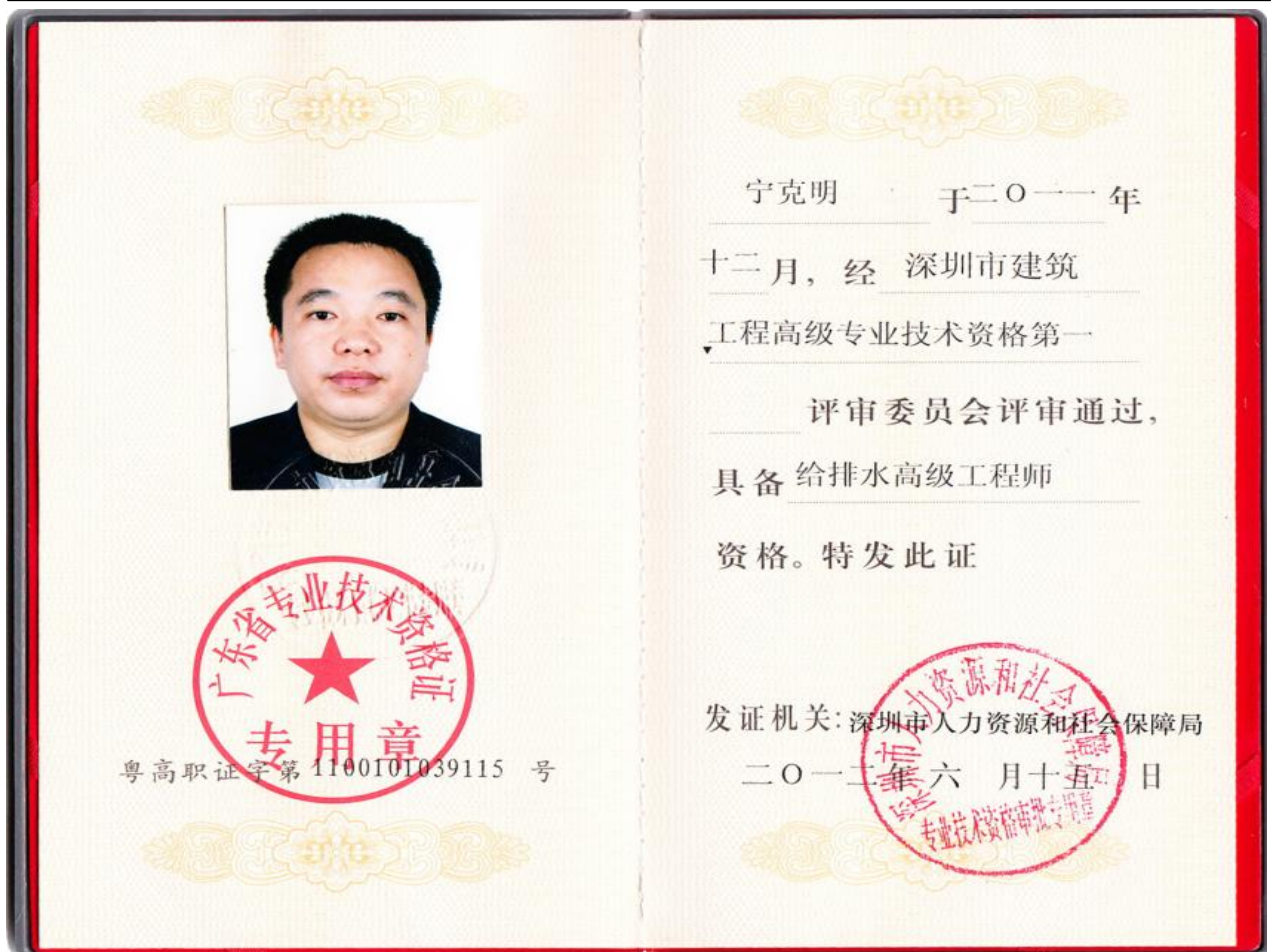 广东省专业技术资格证
专用章
粤高职证字第 1100101039115 号
宁克明 于二〇一一年
十二月，经 深圳市建筑
工程高级专业技术资格第一
评审委员会评审通过，
具备 给排水高级工程师
资格。特发此证
发证机关：深圳市人力资源和社会保障局
二〇一二年 六 月十五 日
深圳市人力资源和社会保障局
专业技术资格审批专用章